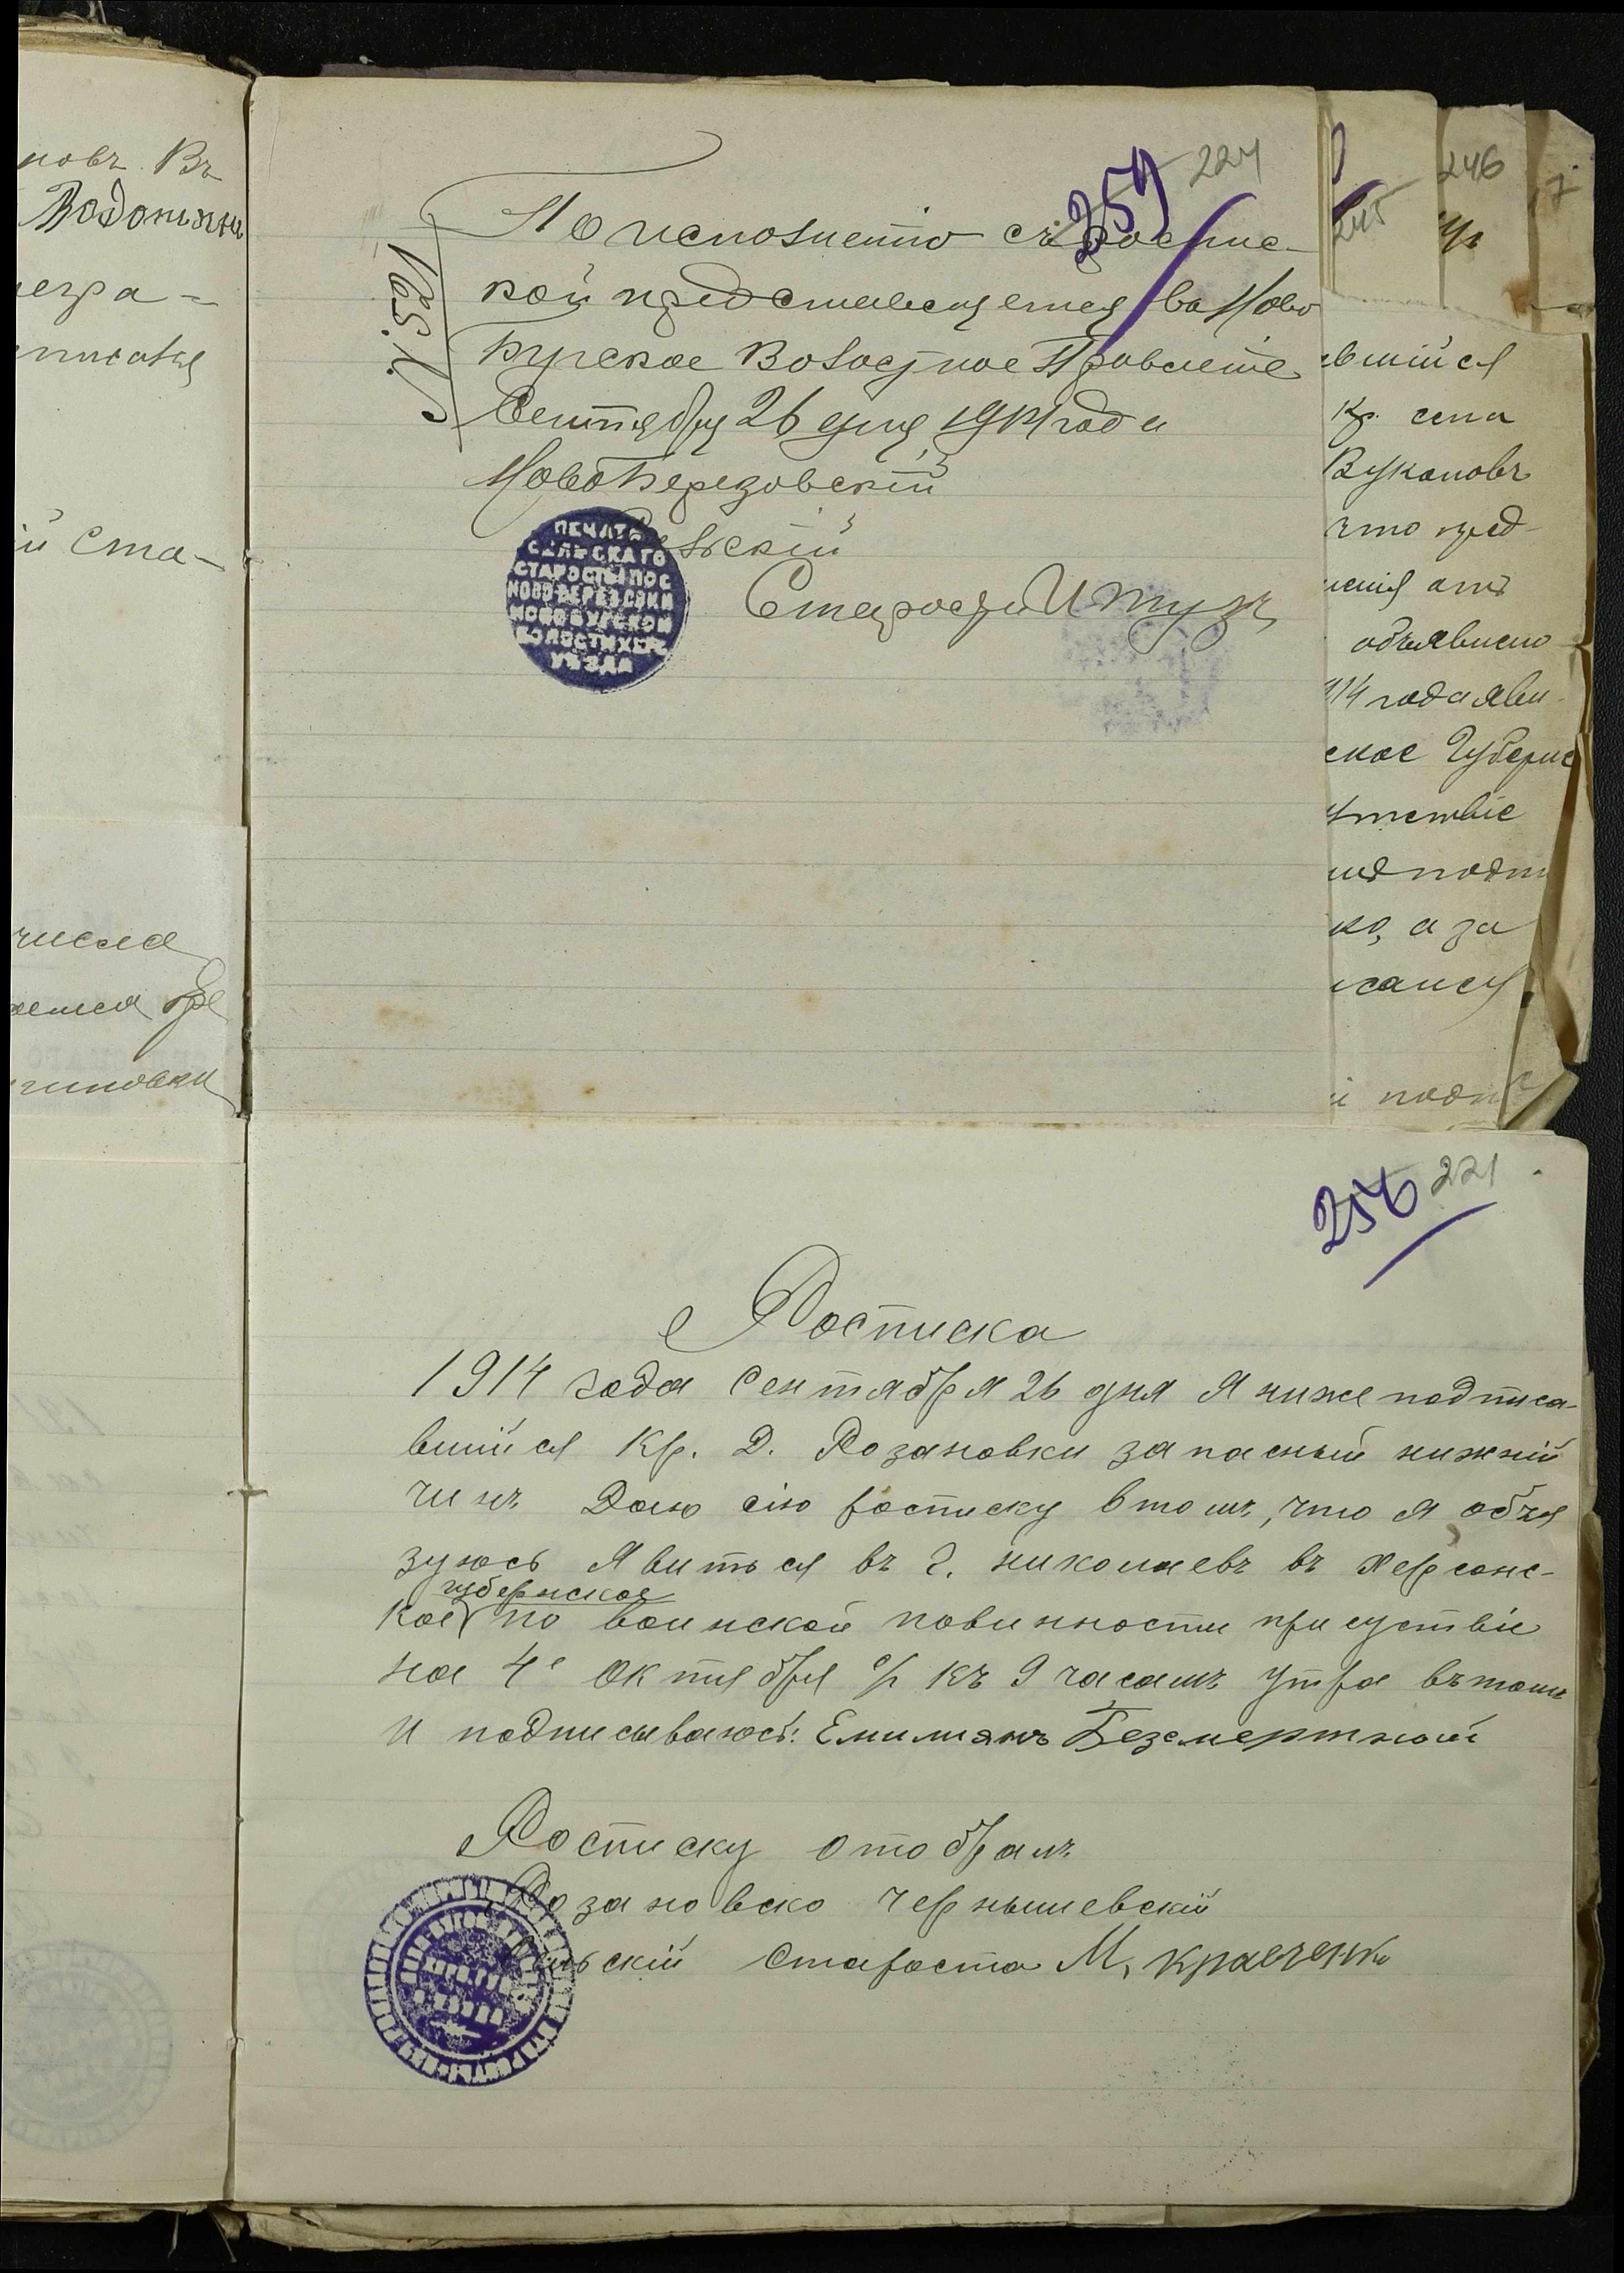 новъ. Въ
Водопьян
егра-
й Ста-
числа
259 224
№ 521
По исполнению съ роспис-
кой представляется въ Ново
Бугское Волостное Правление
Сентября 26 дня 1914 года
НовоБерезовскій
Сельскій
Староста И Шулъ
ПЕЧАТЬ
СЕЛЬСКАГО
СТАРОСТЫ ПОС
НОВО-БЕРЕЗОВКИ
НОВОБУГСКОЙ
ВОЛОСТИ ХЕРС
УѢЗДА
245
246
7
вшийся
Кр. села
Вукановъ
что пред
объявлено
914 года яви-
ское Губерн
утствіе
ко, а за
и подп
256 221
Росписка
1914 года Сентября 26 дня Я ниже подписа-
вшийся Кр. Д. Розановки запасный нижній
чинъ Даю сію росписку втомъ, что я обья
зуюсь Явиться въ г. николаевъ въ Херсонс-
губернское
кое по воинской повинности присуствіе
на 4е Октября с/г къ 9 часамъ утра въ томъ
и подписываюсь: Емилиянъ Безсмертной
Росписку отобралъ
Розановско Чернышевскій
Сельскій Староста М, Кравченко